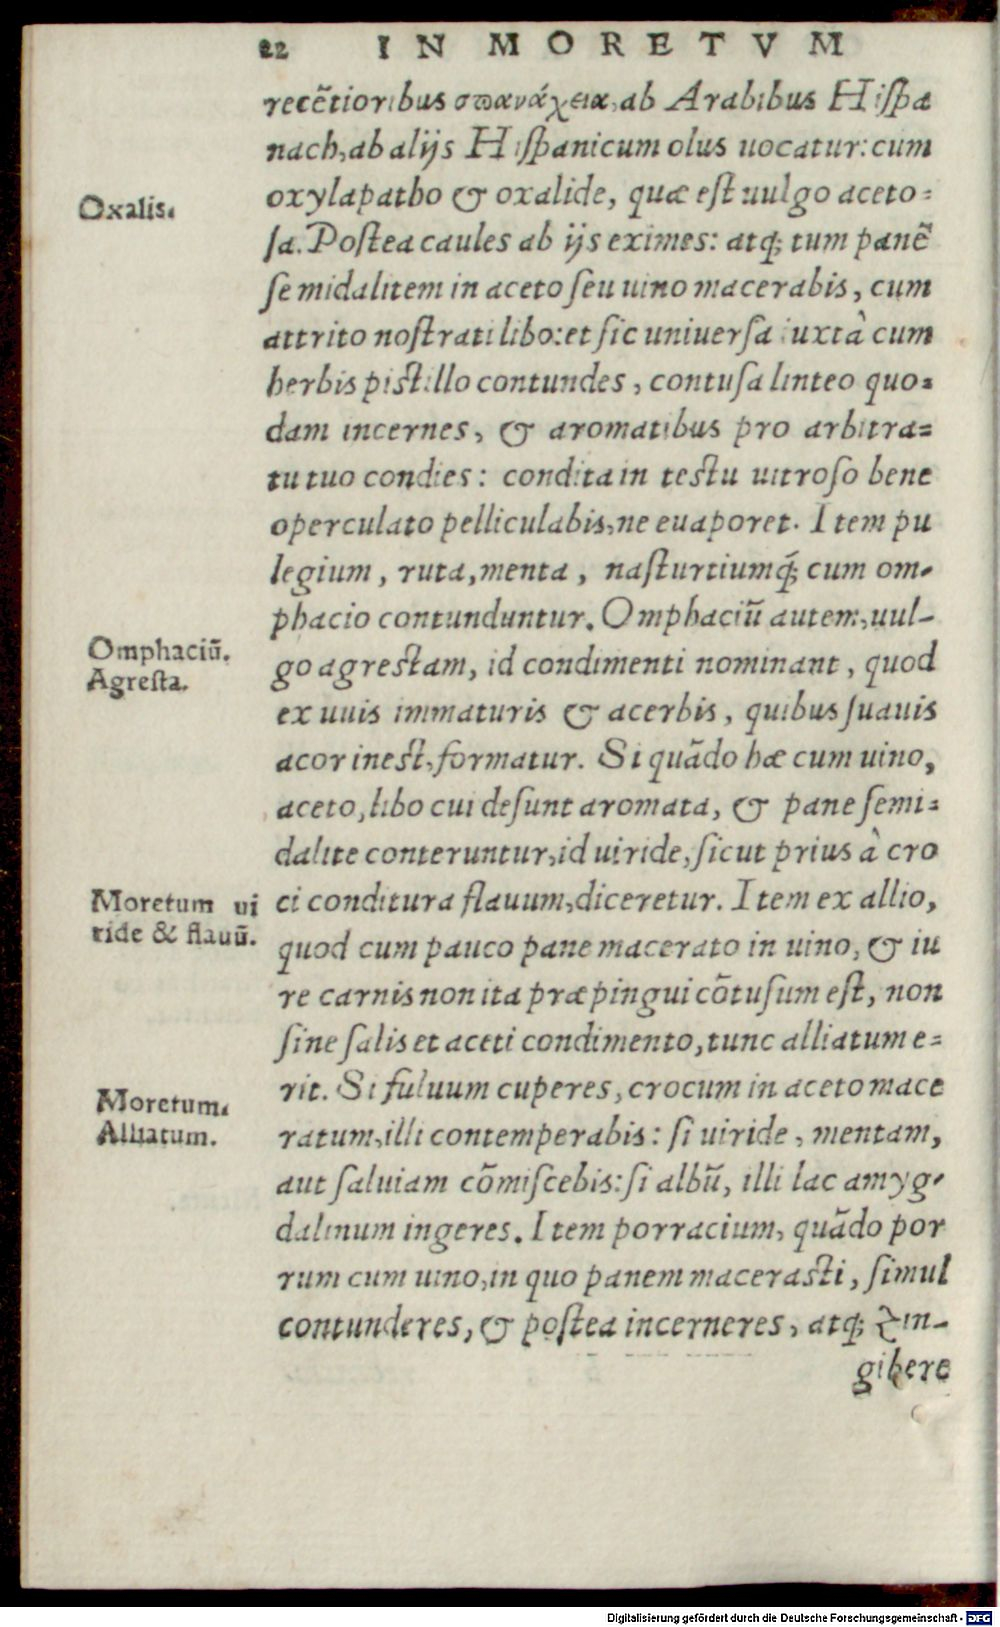 22 IN MORETVM
recẽtioribus σπανάχεια, ab Arabibus Hiſpa
nach, ab alijs Hiſpanicum olus uocatur: cum
Oxalis.
oxylapatho & oxalide, quæ eſt uulgo aceto=
ſa. Poſtea caules ab ijs eximes: atq; tum panẽ
ſemidalitem in aceto ſeu uino macerabis, cum
attrito noſtrati libo: et ſic uniuerſa iuxtà cum
herbis piſtillo contundes, contuſa linteo quo=
dam incernes, & aromatibus pro arbitra=
tu tuo condies: condita in teſtu uitroſo bene
operculato pelliculabis, ne euaporet. Item pu
legium, ruta, menta, naſturtiumq́; cum om-
phacio contunduntur. Omphaciũ autem, uul-
Omphaciũ.
Agreſta.
go agreſtam, id condimenti nominant, quod
ex uuis immaturis & acerbis, quibus ſuauis
acor ineſt, formatur. Si quãdo hæ cum uino,
aceto, libo cui deſunt aromata, & pane ſemi=
dalite conteruntur, id uiride, ſicut prius à cro
Moretum ui
ride & flauũ.
ci conditura flauum, diceretur. Item ex allio,
quod cum pauco pane macerato in uino, & iu
re carnis non ita præpingui cõtuſum eſt, non
ſine ſalis et aceti condimento, tunc alliatum e=
rit. Si fuluum cuperes, crocum in aceto mace
Moretum.
Alliatum.
ratum, illi contemperabis: ſi uiride, mentam,
aut ſaluiam cõmiſcebis: ſi albũ, illi lac amyg-
dalinum ingeres. Item porracium, quãdo por
rum cum uino, in quo panem maceraſti, ſimul
contunderes, & poſtea incerneres, atq; zin-
gibere
Digitalisierung gefördert durch die Deutsche Forschungsgemeinschaft - DFG